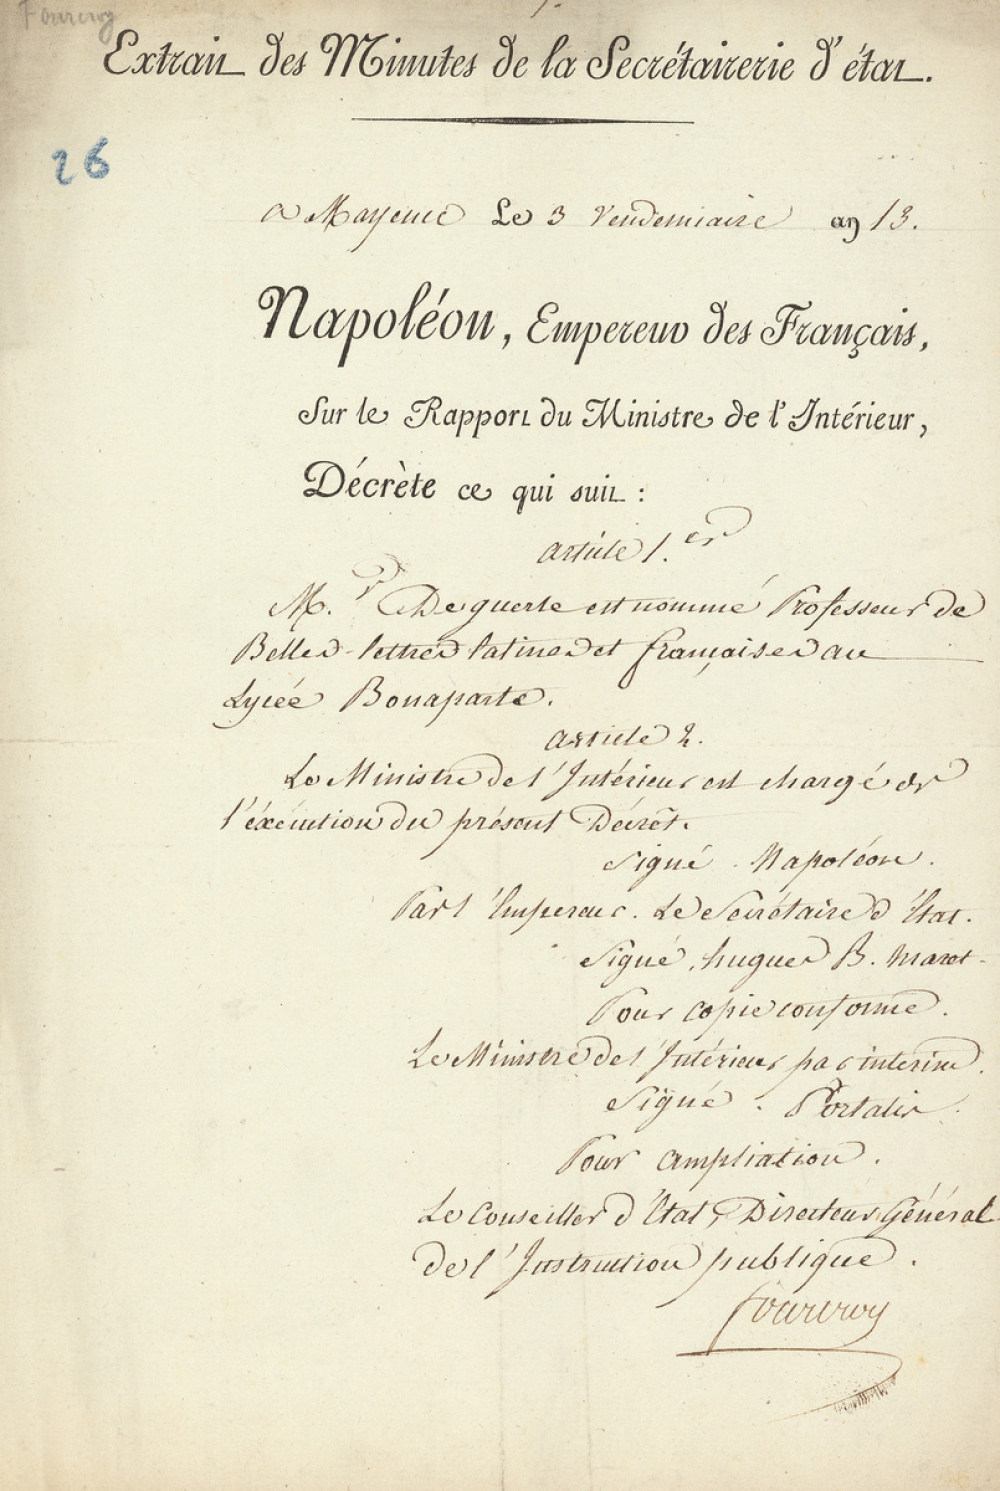 Fourcroy
Extrait des Minutes de la Secrétairerie d'état.
26
a Mayence Le 3 Vendemiaire an 13.
Napoléon, Empereur des Français,
Sur le Rapport du Ministre de l'Intérieur,
Décrète ce qui suit :
article 1.er
M.r Deguerle est nommé Professeur de
Belles-lettres latines et françaises au
Lycée Bonaparte.
article 2.
Le Ministre de l'Intérieur est chargé de
l'éxécution du présent Décret.
Signé . Napoléon .
Par l'Empereur. Le Secrétaire d'Etat.
Signé, hugues B. Maret.
Pour copie conforme .
Le Ministre de l'Intérieur par interim .
Signé . Portalis .
Pour ampliation .
Le Conseiller d'Etat, Directeur Général
de l'Instruction publique .
Fourcroy